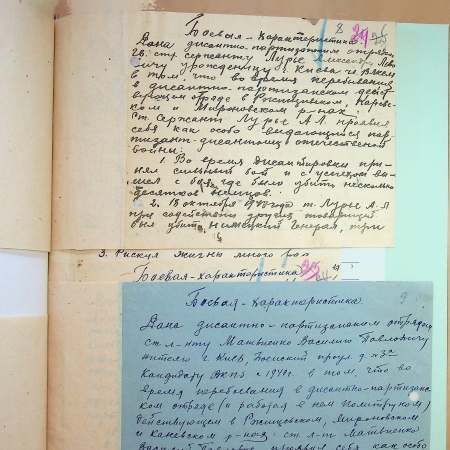 8 29
Боевая-характеристика.
Дана дисантно-партизанским отрядом
гв. ст. сержанту Лурье Александру Льво
вичу урожденцу г. Киева чл. ВЛКСМ
в том, что во время перебывания
в дисантно-партизанском дейст
вующем отряде в Ржищевском, Канев-
ском и Мироновском р-нах.
Ст. Сержант Лурье А.Л. проявил
себя как особо выдающийся пар-
тизант-дисантник отечественной
войны:
1. Во время дисантировки при-
нял сильный бой и с успехом вы-
шел с боя, где было убито несколько
десятков немцев.
2. 18 октября 1943 года т. Лурье А.Л
при содействии других товарищей
был убит немецкий генерал, три
3. Рискуя жизнью много раз
Боевая-характеристика
Боевая-характеристика 9
Дана дисантно-партизанским отрядом
ст. л-нту Матвиенко Василию Павловичу
жителю г. Киев, проул. д. №3а
Кандидату ВКПб с 1941г. в том, что во
время перебывания в дисантно-партизанс
ком отряде (и работая в нем Политруком)
действующем в Ржищевском, Мироновском
и Каневском р-нах: ст. л-т Матвиенко
Василий проявил себя как особо